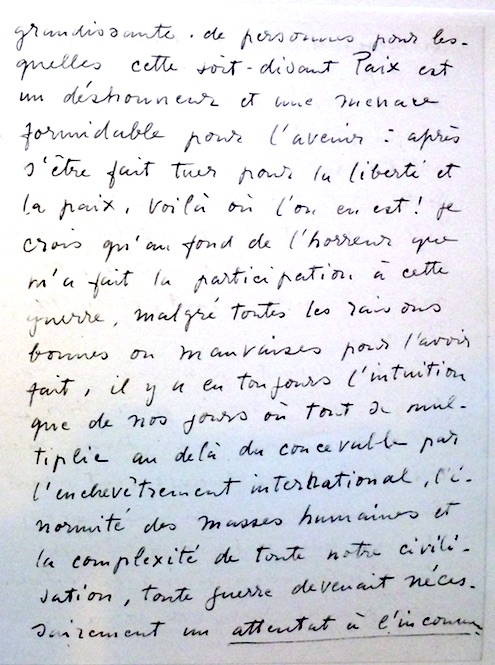 grandissante. de personnes pour les-
quelles cette soit-disant Paix est
un déshonneur et une menace
formidable pour l'avenir : après
s'être fait tuer pour la liberté et
la paix, voilà où l'on en est! je
crois qu'au fond de l'horreur que
m'a fait la participation à cette
guerre, malgré toutes les raisons
bonnes ou mauvaises pour l'avoir
fait, il y a eu toujours l'intuition
que de nos jours où tout se mul-
tiplie au delà du concevable par
l'enchevêtrement international, l'é-
normité des masses humaines et
la complexité de toute notre civili-
sation, toute guerre devenait néces-
sairement un attentat à l'incomm